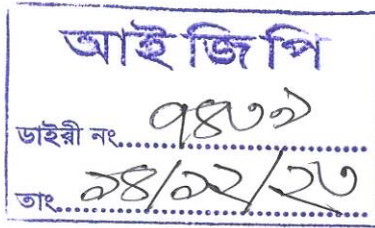 আই জি পি
ডাইরী নং..... ৭৪৩৯
তাং..... ১৪/১২/২৩